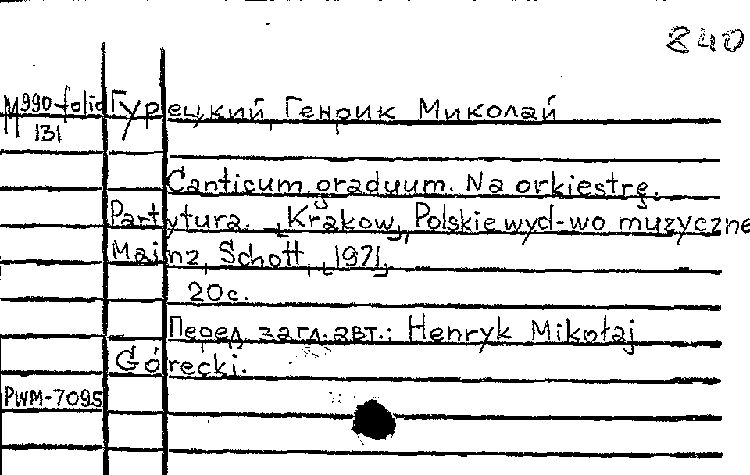 840
M990-folio Гурецкий, Генрик Миколай
131
Canticum graduum. Na orkiestrę.
Partytura. [Krakow], Polskie wyd-wo muzyczne
Mainz, Schott, [1971].
20с.
Перед загл. авт.: Henryk Mikołaj
Górecki.
PWM-7095